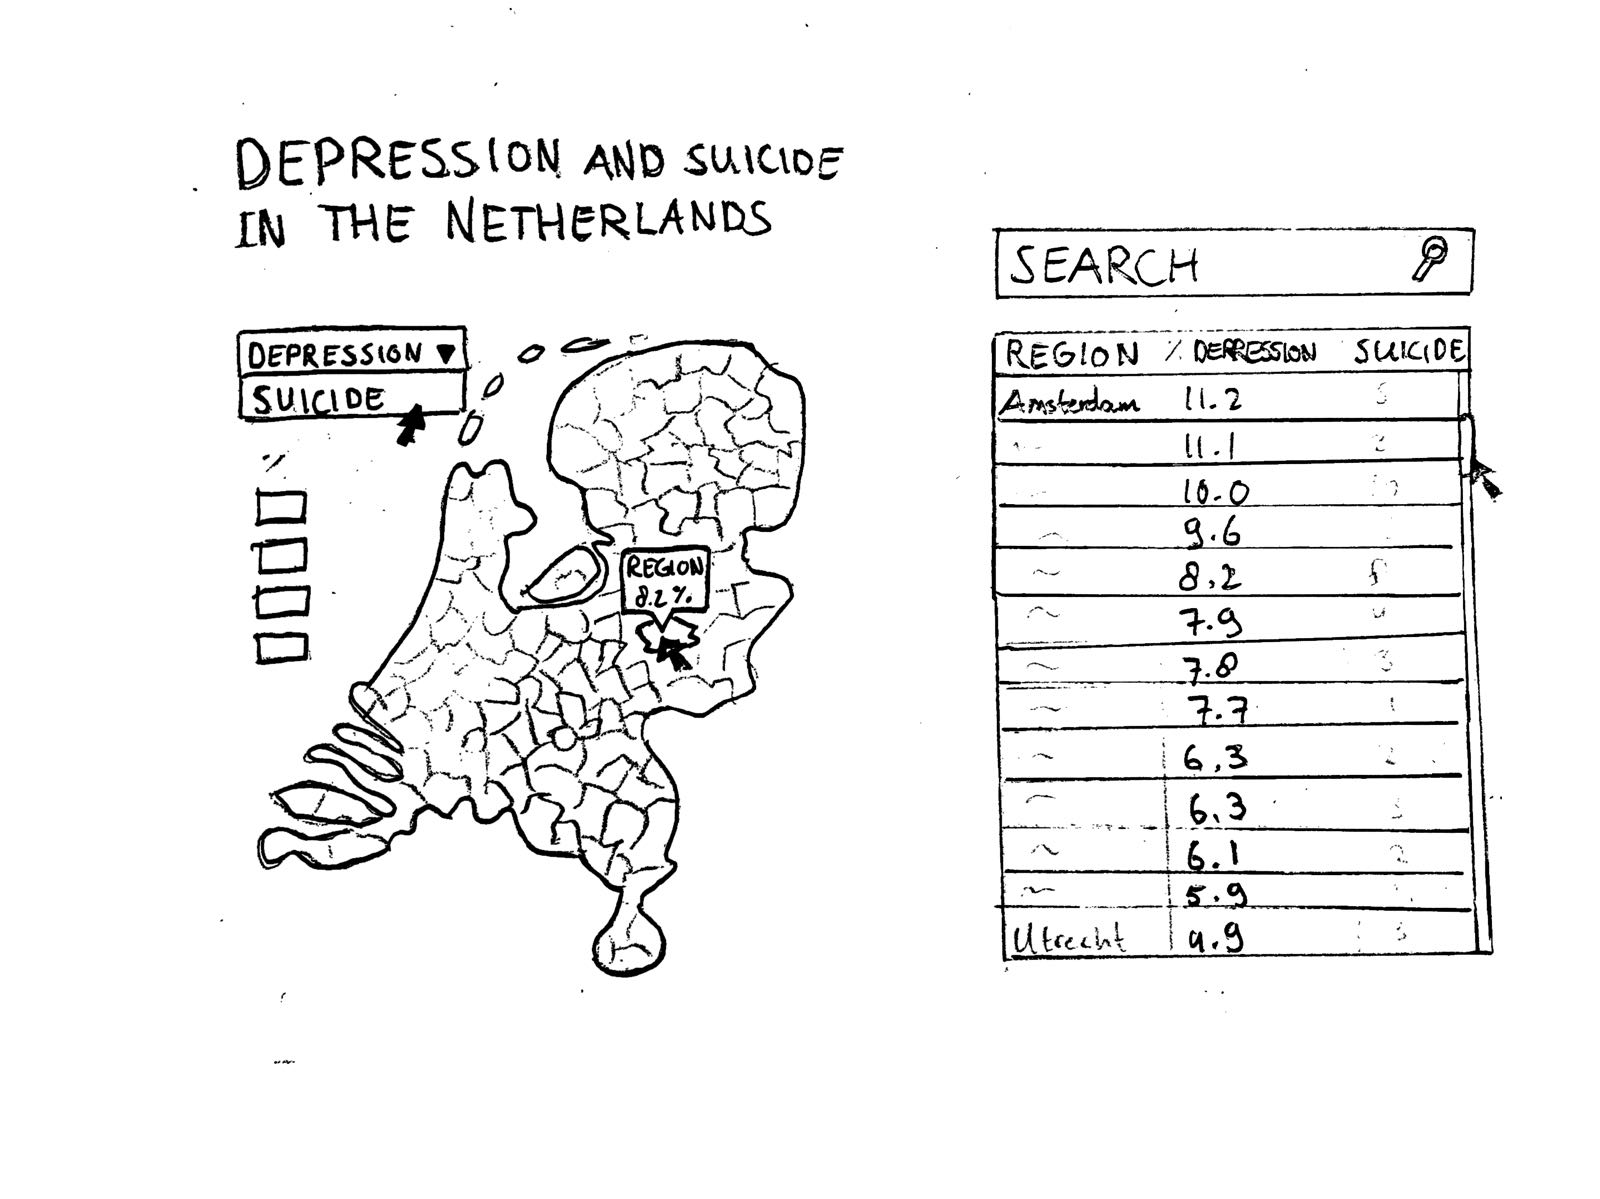 DEPRESSION AND SUICIDE
IN THE NETHERLANDS
DEPRESSION ▼
SUICIDE
%
REGION
8.2 %.
SEARCH
REGION % DEPRESSION SUICIDE
Amsterdam 11.2 5
11.1 3
10.0
9.6
8.2
7.9
7.8 3
7.7 1
6.3 2
6.3 3
6.1 2
5.9
Utrecht 4.9 3